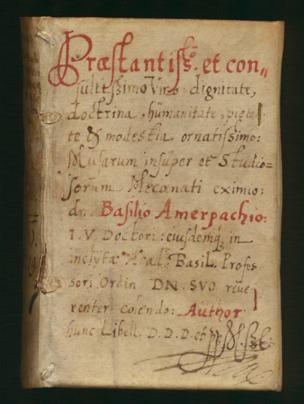 Præstantiss.o et con=
sultissimo Viro: dignitate,
doctrina, humanitate, pieta
te & modestia ornatissimo:
Musarum insuper et Studio=
sorum Mecœnati eximio:
dn. Basilio Amerpachio:
I. V. Doctori: eiusdemq; in
inclyta Acad: Basil. Profes
sori Ordin. DN. SVO reue
renter colendo: Author
hunc Libell. D. D. D. et